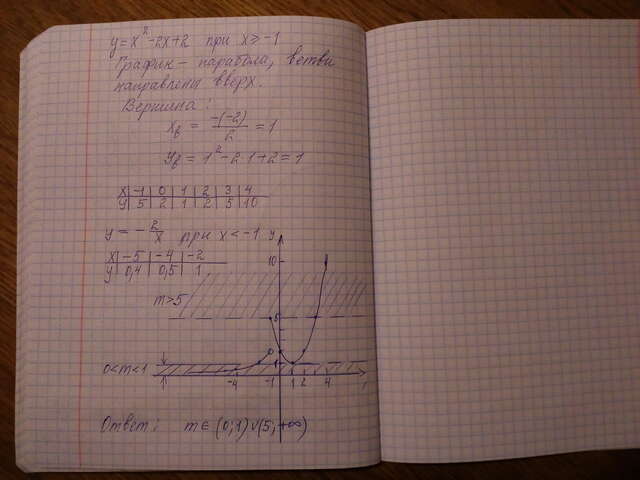 y = x² - 2x + 2 при x ≥ -1
График - парабола, ветви
направлены вверх.
Вершина:
x_в = -(-2)/2 = 1
y_в = 1² - 2·1 + 2 = 1
x | -1 | 0 | 1 | 2 | 3 | 4
y | 5 | 2 | 1 | 2 | 5 | 10
y = -2/x при x < -1
x | -5 | -4 | -2
y | 0,4 | 0,5 | 1
y
10
m>5
5
0<m<1
1
-4 -1 1 2 4
Ответ: m ∈ (0;1)∪(5;+∞)